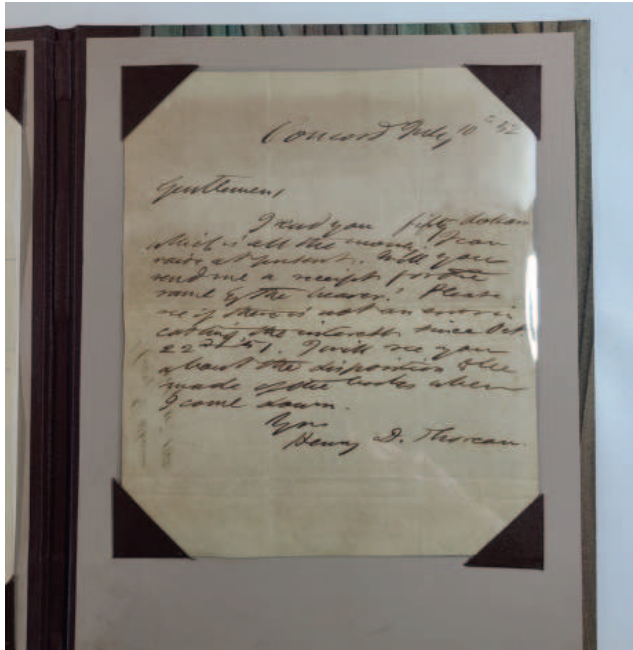 Concord July 10th 52
Gentlemen,
I send you fifty dollars
which is all the money I can
raise at present. Will you
send me a receipt for the
same by the bearer? Please
see if there is not an error in
casting the interest since Oct.
22nd '51. I will see you
about the disposition to be
made of the books when
I come down.
Yrs
Henry D. Thoreau.